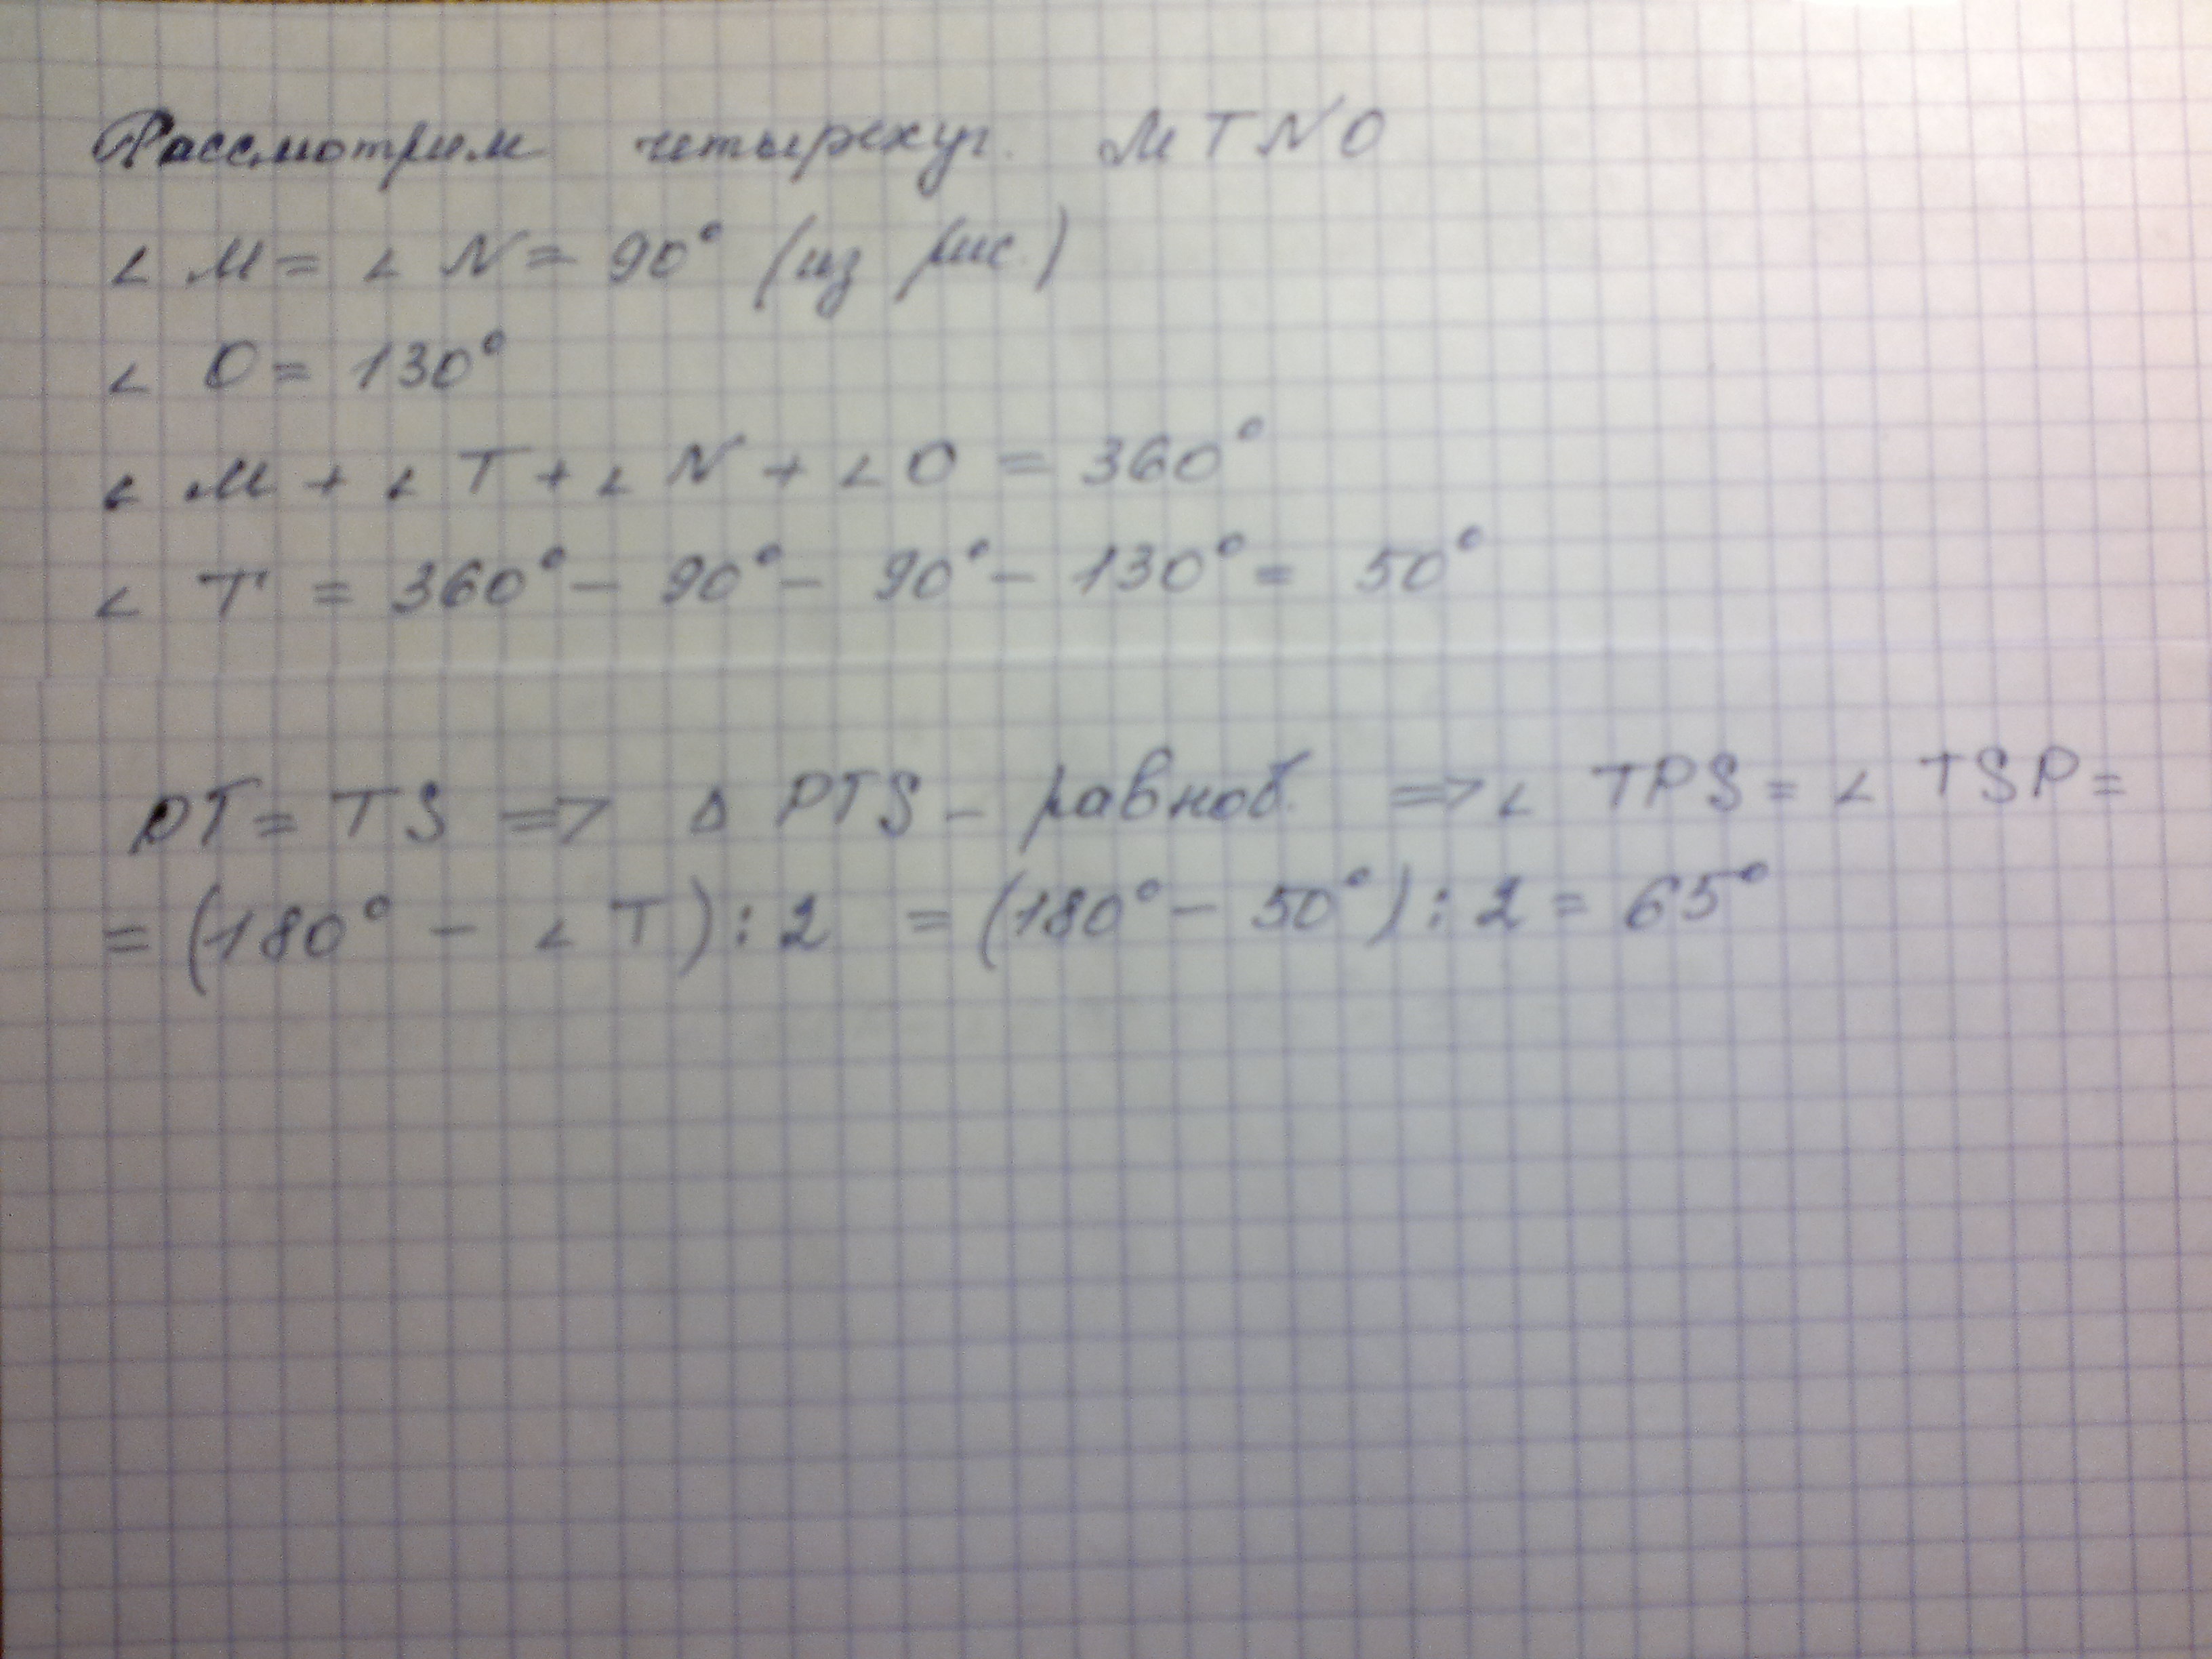 Рассмотрим четырехуг. MTNO
∠ M = ∠ N = 90° (из рис.)
∠ O = 130°
∠ M + ∠ T + ∠ N + ∠ O = 360°
∠ T = 360° – 90° – 90° – 130° = 50°
PT = TS => Δ PTS – равноб. => ∠ TPS = ∠ TSP =
= (180° – ∠ T) : 2 = (180° – 50°) : 2 = 65°